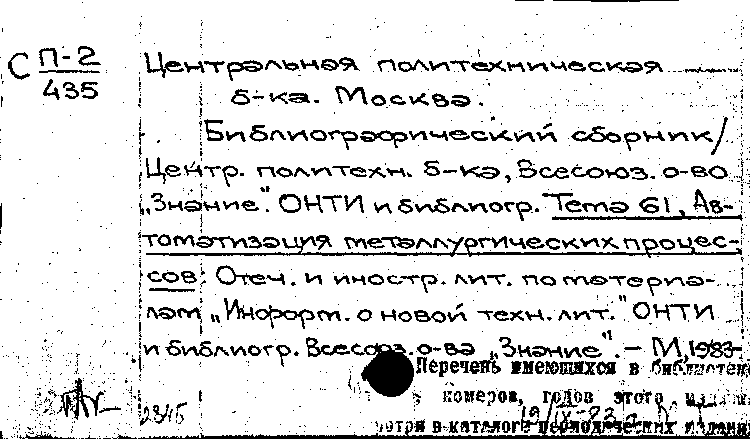 С П-2
435
Центральная политехническая
б-ка. Москва.
Библиографический сборник/
Центр. политехн. б-ка, Всесоюз. о-во
„Знание". ОНТИ и библиогр. Тема 61, Ав-
томатизация металлургических процес-
сов: Отеч. и иностр. лит. по материа-
лам „Информ. о новой техн. лит." ОНТИ
и библиогр. Всесоюз. о-ва „Знание". – М, 1983-
Перечень имеющихся в библиотеке
номеров, годов этого издания
2345
19/IX-83
смотри в каталоге периодических изданий